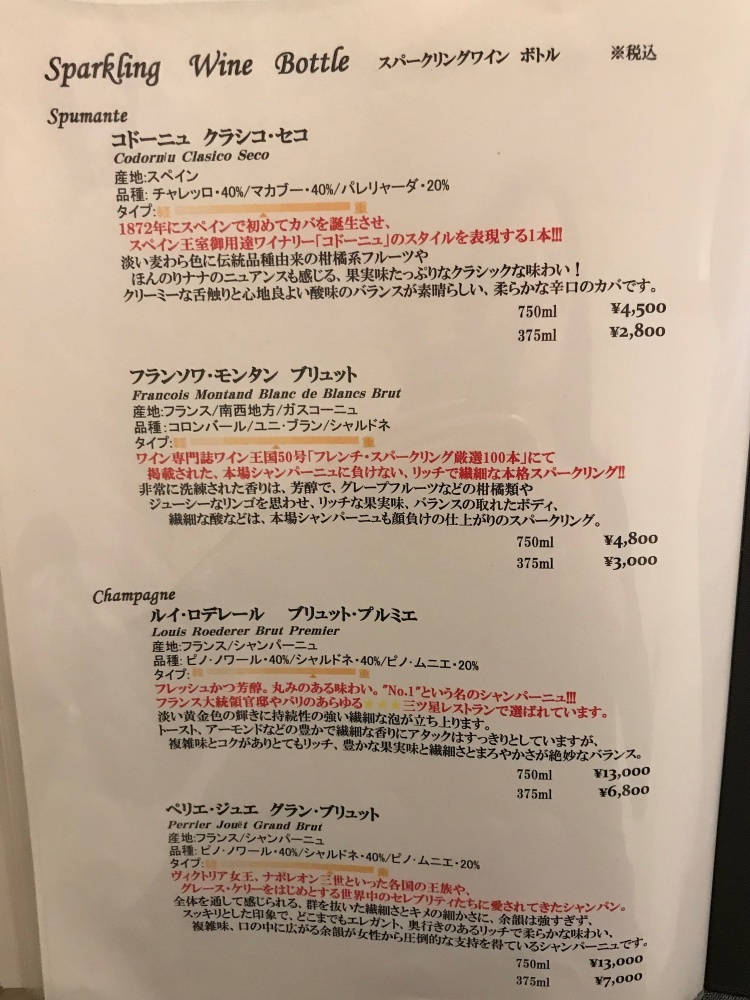 Sparkling Wine Bottle スパークリングワイン ボトル ※税込
Spumante
コドーニュ クラシコ・セコ
Codorníu Clasico Seco
産地:スペイン
品種: チャレッロ・40%/マカブー・40%/パレリャーダ・20%
タイプ:軽 重
1872年にスペインで初めてカバを誕生させ、
スペイン王室御用達ワイナリー「コドーニュ」のスタイルを表現する1本!!!
淡い麦わら色に伝統品種由来の柑橘系フルーツや
ほんのりナナのニュアンスも感じる、果実味たっぷりなクラシックな味わい!
クリーミーな舌触りと心地良よい酸味のバランスが素晴らしい、柔らかな辛口のカバです。
750ml ¥4,500
375ml ¥2,800
フランソワ・モンタン ブリュット
Francois Montand Blanc de Blancs Brut
産地:フランス/南西地方/ガスコーニュ
品種:コロンバール/ユニ・ブラン/シャルドネ
タイプ:軽 重
ワイン専門誌ワイン王国50号「フレンチ・スパークリング厳選100本」にて
掲載された、本場シャンパーニュに負けない、リッチで繊細な本格スパークリング!!
非常に洗練された香りは、芳醇で、グレープフルーツなどの柑橘類や
ジューシーなリンゴを思わせ、リッチな果実味、バランスの取れたボディ、
繊細な酸などは、本場シャンパーニュも顔負けの仕上がりのスパークリング。
750ml ¥4,800
375ml ¥3,000
Champagne
ルイ・ロデレール ブリュット・プルミエ
Louis Roederer Brut Premier
産地:フランス/シャンパーニュ
品種: ピノ・ノワール・40%/シャルドネ・40%/ピノ・ムニエ・20%
タイプ:軽 重
フレッシュかつ芳醇。丸みのある味わい。"No.1"という名のシャンパーニュ!!!
フランス大統領官邸やパリのあらゆる★★★三ツ星レストランで選ばれています。
淡い黄金色の輝きに持続性の強い繊細な泡が立ち上ります。
トースト、アーモンドなどの豊かで繊細な香りにアタックはすっきりとしていますが、
複雑味とコクがありとてもリッチ、豊かな果実味と繊細さとまろやかさが絶妙なバランス。
750ml ¥13,000
375ml ¥6,800
ペリエ・ジュエ グラン・ブリュット
Perrier Jouët Grand Brut
産地:フランス/シャンパーニュ
品種: ピノ・ノワール・40%/シャルドネ・40%/ピノ・ムニエ・20%
タイプ:軽 重
ヴィクトリア女王、ナポレオン三世といった各国の王族や、
グレース・ケリーをはじめとする世界中のセレブリティたちに愛されてきたシャンパン。
全体を通して感じられる、群を抜いた繊細さとキメの細かさに、余韻は強すぎず、
スッキリとした印象で、どこまでもエレガント、奥行きのあるリッチで柔らかな味わい、
複雑味、口の中に広がる余韻が女性から圧倒的な支持を得ているシャンパーニュです。
750ml ¥13,000
375ml ¥7,000